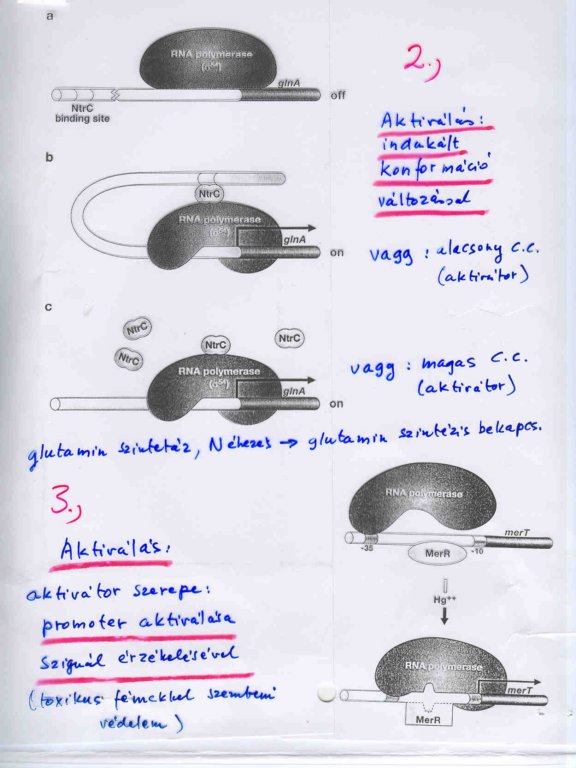 a
RNA polymerase
(σ54)
glnA
off
NtrC
binding site
2.,
Aktiválás:
indukált
konformáció
változással
b
NtrC
RNA polymerase
(σ54)
glnA
on
vagy : alacsony c.c.
(aktivátor)
c
NtrC
NtrC
NtrC
NtrC
RNA polymerase
(σ54)
glnA
on
vagy : magas c.c.
(aktivátor)
glutamin szintetáz, N éhezés → glutamin szintézis bekapcs.
3.,
Aktiválás:
aktivátor szerepe:
promoter aktiválása
szignál érzékelésével
(toxikus fémekkel szembeni
védelem)
RNA polymerase
merT
-35
-10
MerR
Hg++
RNA polymerase
merT
MerR